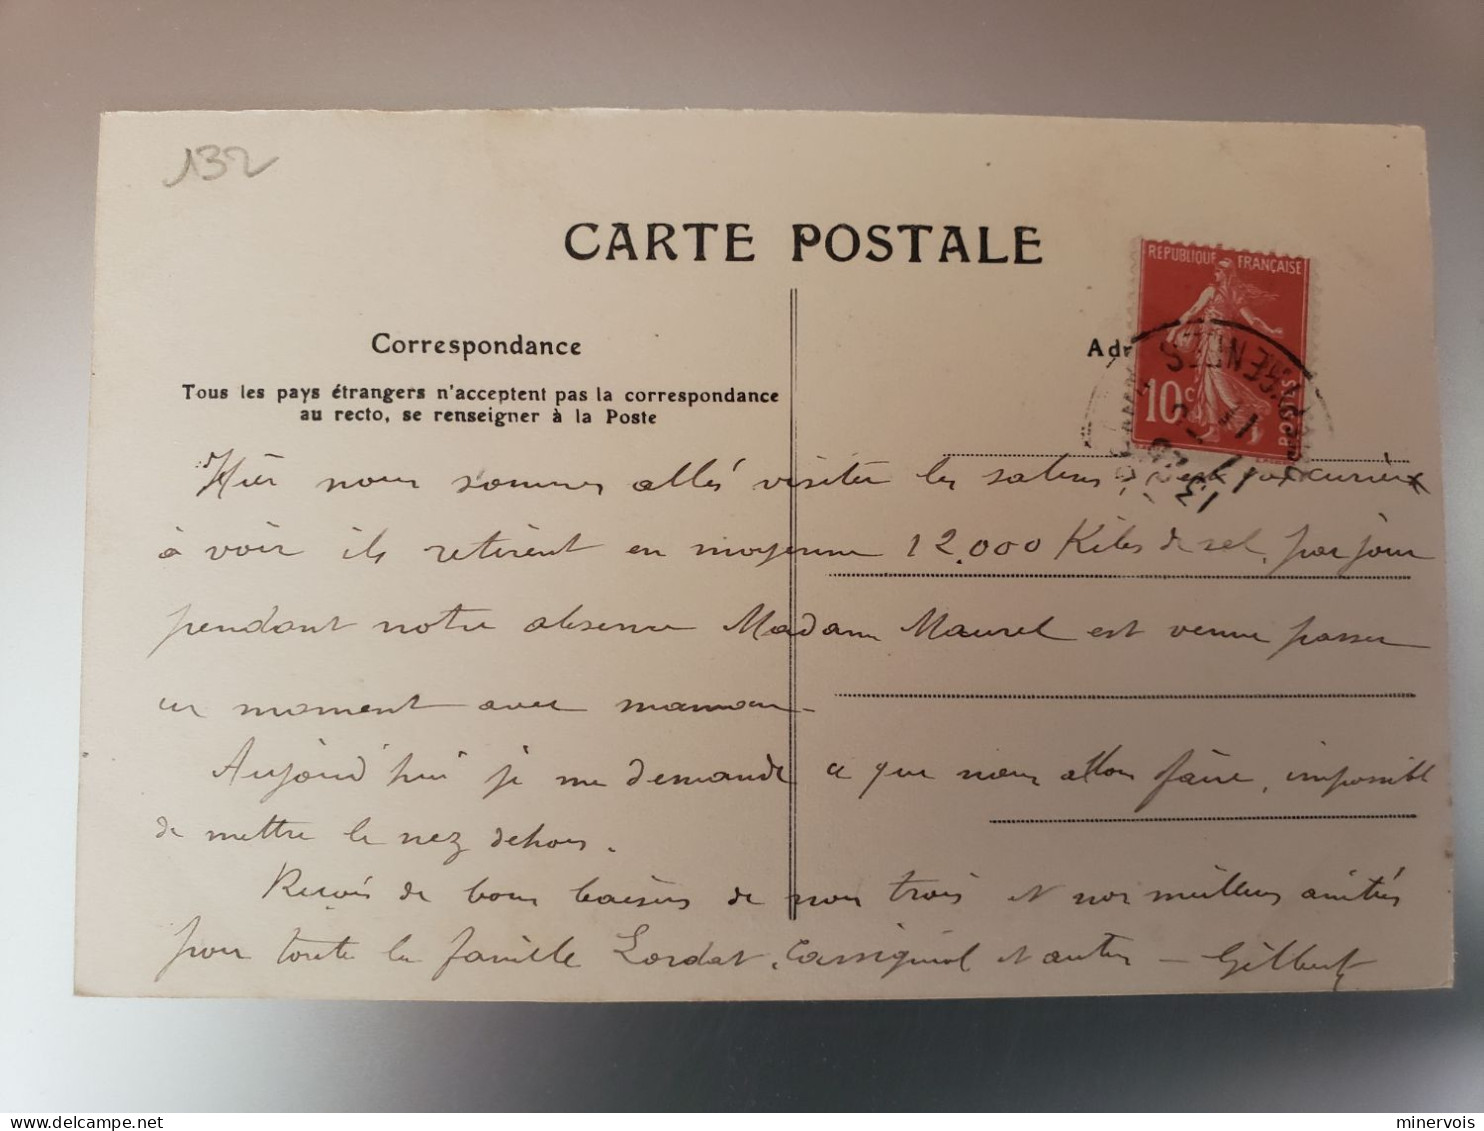 132
CARTE POSTALE
REPUBLIQUE FRANÇAISE
10c
POSTES
Correspondance
Adr
Tous les pays étrangers n'acceptent pas la correspondance
au recto, se renseigner à la Poste
Hier nous sommes allés visiter les salins curieux
à voir ils retirent en moyenne 12.000 Kilos de sel, par jour
pendant notre absence Madame Maurel est venue passer
un moment avec maman -
Aujourd'hui je me demande ce que nous allons faire, impossible
de mettre le nez dehors.
Reçois de bons baisers de nous trois et nos meilleures amitiés
pour toute la famille Lordat, Cassignol et autres - Gilbert
minervois